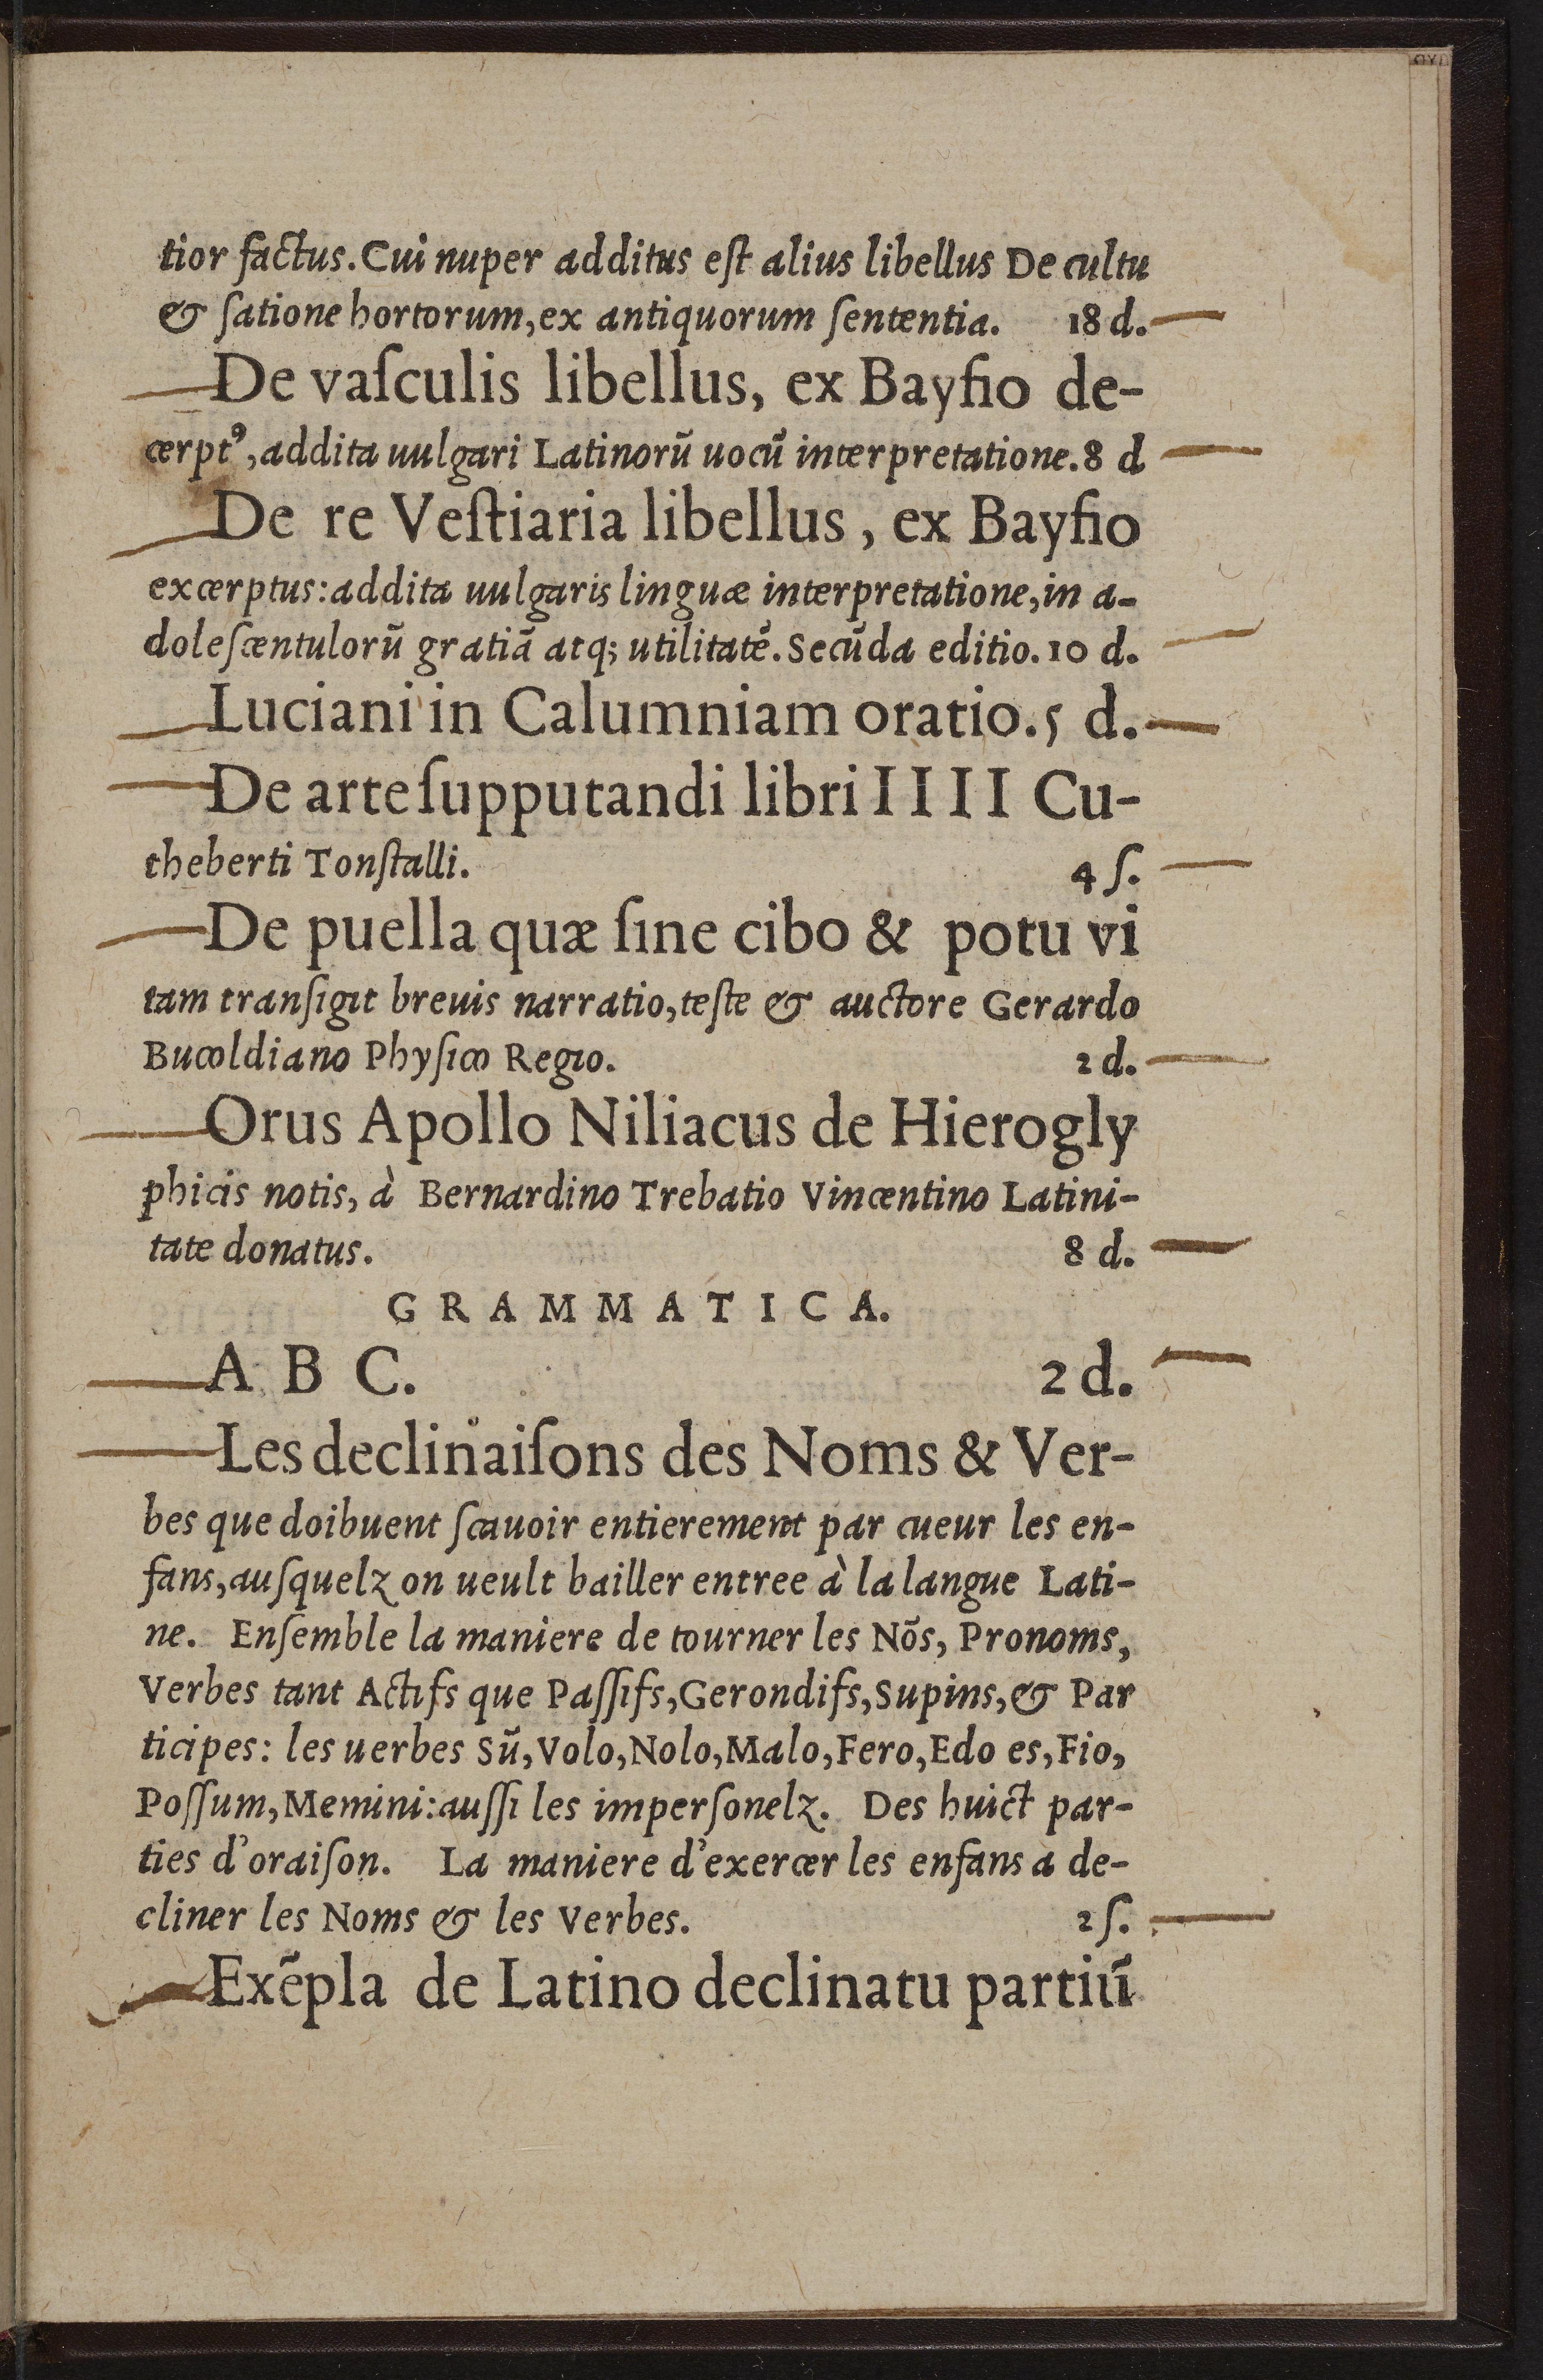 tior factus. Cui nuper additus eſt alius libellus De cultu
& ſatione hortorum, ex antiquorum ſententia. 18 d.
De vaſculis libellus, ex Bayfio de-
cerptꝰ, addita uulgari Latinorū uocū interpretatione. 8 d
De re Veſtiaria libellus, ex Bayfio
excerptus: addita uulgaris linguæ interpretatione, in a-
doleſcentulorū gratiā atq; utilitatē. Secūda editio. 10 d.
Luciani in Calumniam oratio. 5 d.
De arte ſupputandi libri IIII Cu-
theberti Tonſtalli. 4 ſ.
De puella quæ ſine cibo & potu vi
tam tranſigit breuis narratio, teſte & auctore Gerardo
Bucoldiano Phyſico Regio. 2 d.
Orus Apollo Niliacus de Hierogly
phicis notis, à Bernardino Trebatio Vincentino Latini-
tate donatus. 8 d.
GRAMMATICA.
A B C. 2 d.
Les declinaiſons des Noms & Ver-
bes que doibuent ſcauoir entierement par cueur les en-
fans, auſquelz on ueult bailler entree à la langue Lati-
ne. Enſemble la maniere de tourner les Nōs, Pronoms,
Verbes tant Actifs que Paſſifs, Gerondifs, Supins, & Par
ticipes: les uerbes Sū, Volo, Nolo, Malo, Fero, Edo es, Fio,
Poſſum, Memini: auſſi les imperſonelz. Des huict par-
ties d'oraiſon. La maniere d'exercer les enfans a de-
cliner les Noms & les Verbes. 2 ſ.
Exēpla de Latino declinatu partiū